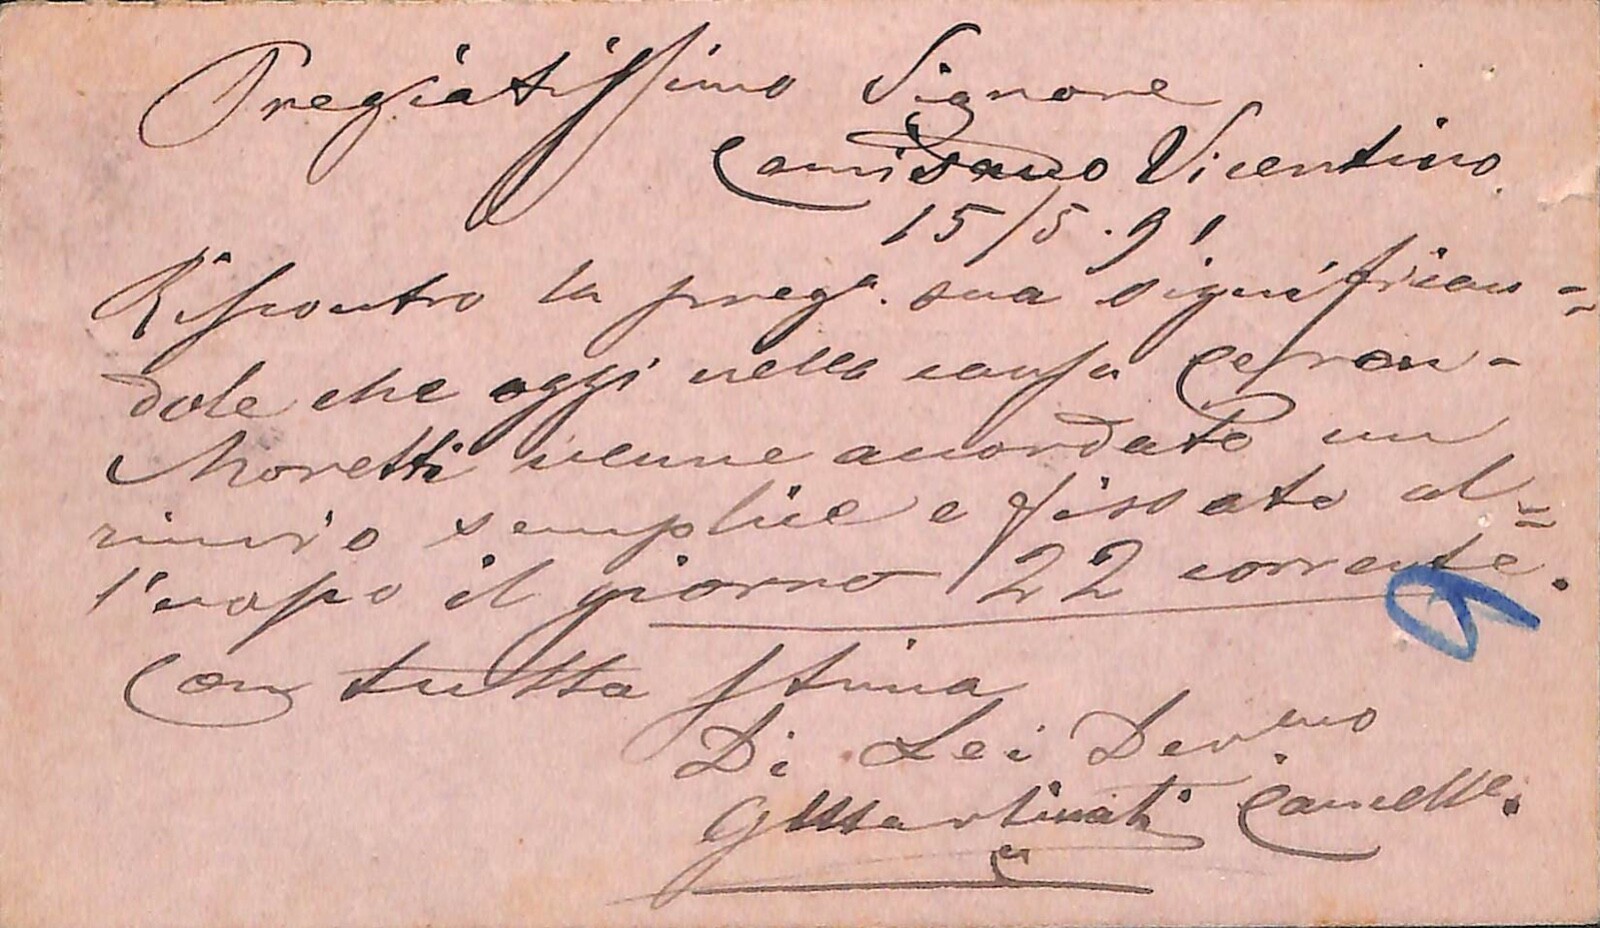 Pregiatissimo Signore
Camisano Vicentino
15/5.91
Riscontro la preg.a sua significan=
dole che oggi nella causa
Moretti venne accordato un
rinvio semplice e fissato al=
l'uopo il giorno 22 corrente.
Con tutta stima
Di Lei Dev.mo
G Martinati Cancell.e